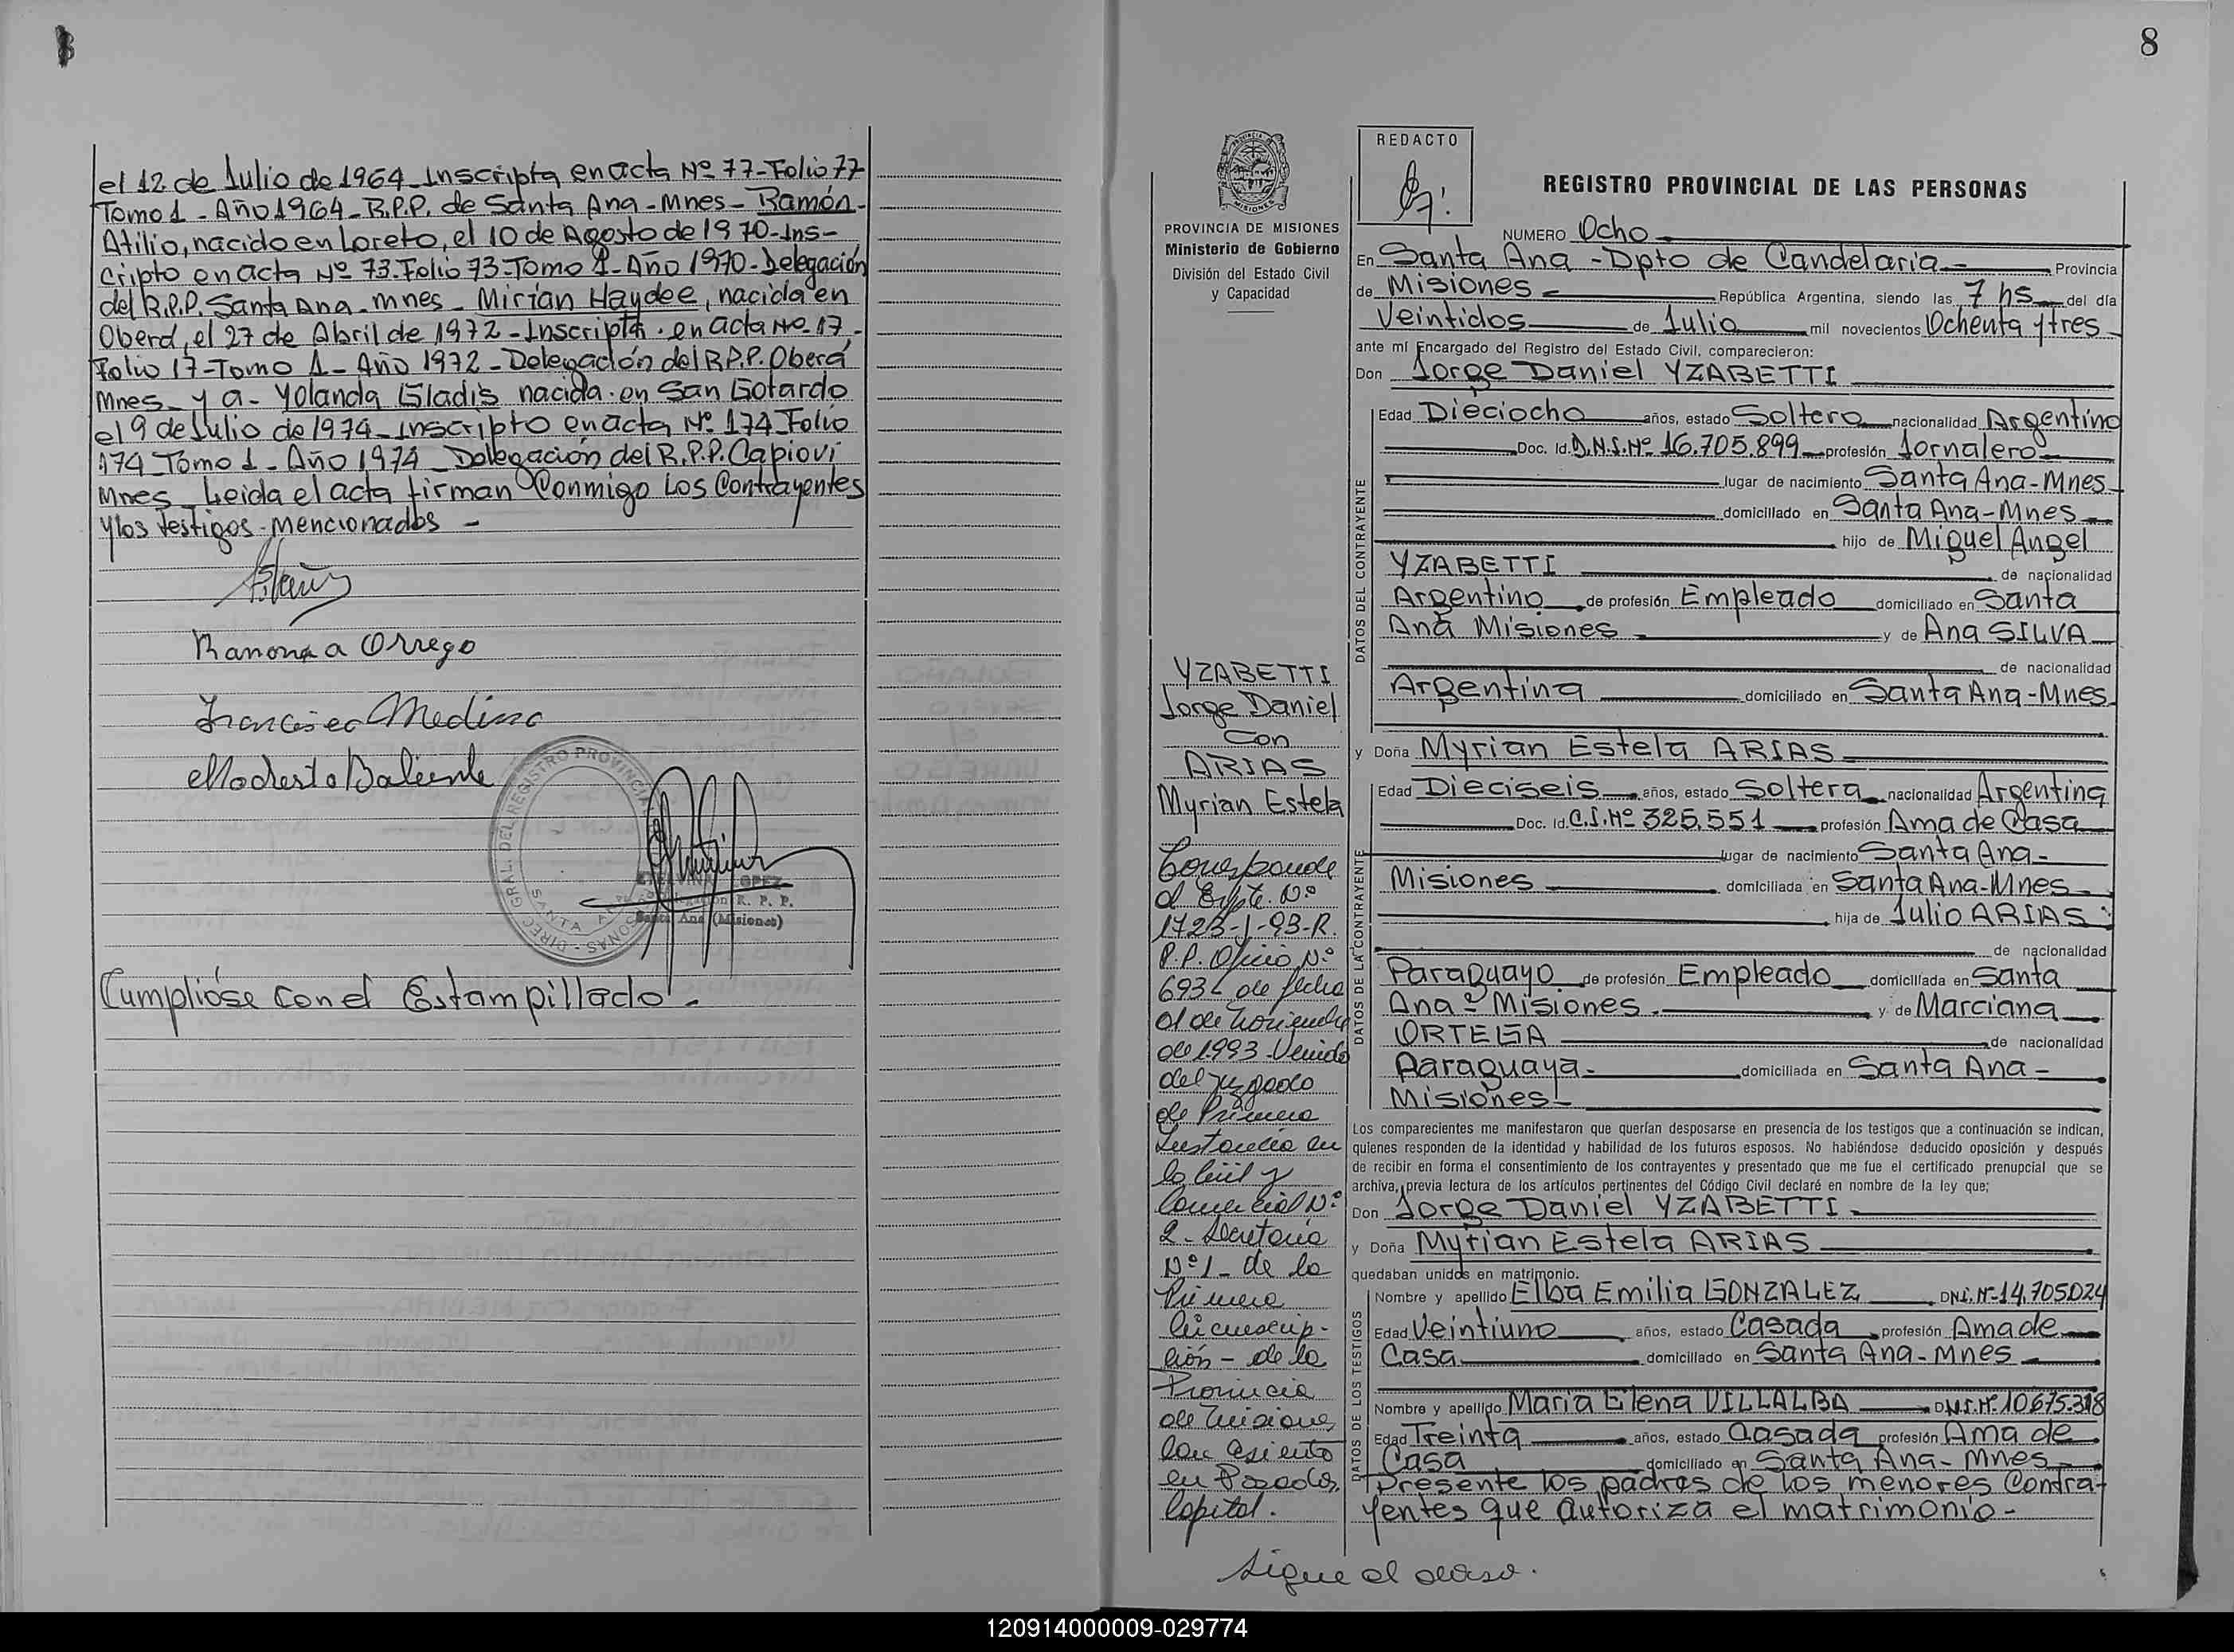 el 12 de Julio de 1964_Inscripta en acta Nº 77-Folio 77
Tomo 1 - Año 1964_R.P.P. de Santa Ana-Mnes- Ramón-
Atilio, nacido en Loreto, el 10 de Agosto de 1970-Ins-
cripto en acta Nº 73-Folio 73-Tomo 1-Año 1970-Delegación
del R.P.P. Santa Ana-mnes_ Mirian Haydee, nacida en
Oberá, el 27 de Abril de 1972-Inscripta en acta Nº 17-
Folio 17-Tomo 1- Año 1972-Delegación del R.P.P. Oberá
Mnes_ y a- Yolanda Gladis nacida en San Gotardo
el 9 de Julio de 1974_Inscripto en acta Nº 174 Folio
174 Tomo 1- Año 1974_Delegación del R.P.P. Capiovi
Mnes_ Leida el acta firman Conmigo Los Contrayentes
y los testigos-mencionados -
Ramona a Orrego
Francisco Medina
Modesto Baliente
DIREC. GRAL. DEL REGISTRO PROVINCIAL
SANTA
LOPEZ
R. P. P.
Santa Ana (Misiones)
Cumplióse con el Estampillado -
8
PROVINCIA DE MISIONES
Ministerio de Gobierno
División del Estado Civil
y Capacidad
YZABETTI
Jorge Daniel
Con
ARIAS
Myrian Estela
Corresponde
al Expte. Nº
1723-J-93-R.
P.P. Oficio Nº
693- de fecha
01 de Noviembre
de 1993-Venido
del Juzgado
de Primera
Instancia en
lo Civil y
Comercial Nº
2- Secretaria
Nº 1- de la
Primera
Circunscrip-
ción - de la
Provincia
de Misiones
con asiento
en Posadas
Capital.
REDACTO
REGISTRO PROVINCIAL DE LAS PERSONAS
NUMERO Ocho
En Santa Ana -Dpto de Candelaria- Provincia
de Misiones - República Argentina, siendo las 7 hs del día
Veintidos de Julio mil novecientos Ochenta y tres
ante mí Encargado del Registro del Estado Civil, comparecieron:
Don Jorge Daniel YZABETTI
DATOS DEL CONTRAYENTE
Edad Dieciocho años, estado Soltero nacionalidad Argentino
Doc. Id. D.N.I.Nº 16.705.899 profesión Jornalero
lugar de nacimiento Santa Ana-Mnes
domiciliado en Santa Ana-Mnes
hijo de Miguel Angel
YZABETTI de nacionalidad
Argentino de profesión Empleado domiciliado en Santa
Ana Misiones y de Ana SILVA
de nacionalidad
Argentina domiciliado en Santa Ana-Mnes
y Doña Myrian Estela ARIAS
DATOS DE LA CONTRAYENTE
Edad Dieciseis años, estado Soltera nacionalidad Argentina
Doc. Id. C.I.Nº 325.551 profesión Ama de Casa
lugar de nacimiento Santa Ana-
Misiones domiciliada en Santa Ana-Mnes
hija de Julio ARIAS
de nacionalidad
Paraguayo de profesión Empleado domiciliada en Santa
Ana - Misiones. y de Marciana
ORTEGA de nacionalidad
Paraguaya- domiciliada en Santa Ana-
Misiones-
Los comparecientes me manifestaron que querían desposarse en presencia de los testigos que a continuación se indican,
quienes responden de la identidad y habilidad de los futuros esposos. No habiéndose deducido oposición y después
de recibir en forma el consentimiento de los contrayentes y presentado que me fue el certificado prenupcial que se
archiva, previa lectura de los artículos pertinentes del Código Civil declaré en nombre de la ley que;
Don Jorge Daniel YZABETTI
y Doña Myrian Estela ARIAS
quedaban unidos en matrimonio.
DATOS DE LOS TESTIGOS
Nombre y apellido Elba Emilia GONZALEZ DNI.Nº-14.705.024
Edad Veintiuno años, estado Casada profesión Ama de
Casa domiciliado en Santa Ana-Mnes
Nombre y apellido Maria Elena VILLALBA D.N.I.Nº 10675.318
Edad Treinta años, estado Casada profesión Ama de
Casa domiciliado en Santa Ana-Mnes
Presente los padres de los menores Contra-
yentes que autoriza el matrimonio-
Sigue al dorso.
120914000009-029774